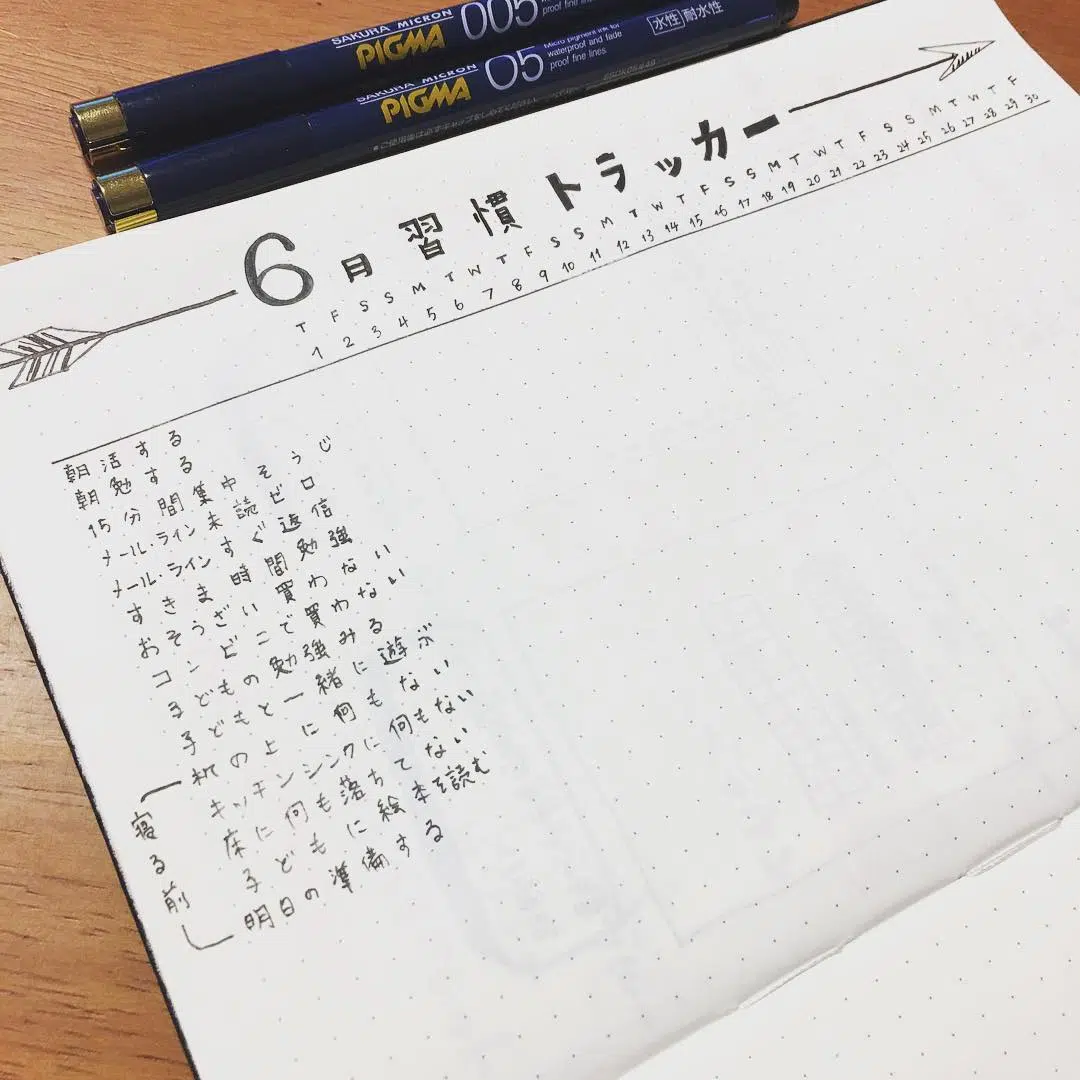 SAKURA MICRON
PIGMA 005 proof fine lines
水性 耐水性
SAKURA MICRON
PIGMA 05 Micro pigment ink for
waterproof and fade
proof fine lines
6月 習慣トラッカー
T F S S M T W T F S S M T W T F S S M T W T F S S M T W T F
1 2 3 4 5 6 7 8 9 10 11 12 13 14 15 16 17 18 19 20 21 22 23 24 25 26 27 28 29 30
朝活する
朝勉する
15分間集中そうじ
メール・ライン未読ゼロ
メール・ラインすぐ返信
すきま時間勉強
おそうざい買わない
コンビニで買わない
子どもの勉強みる
子どもと一緒に遊ぶ
寝る前
机の上に何もない
キッチンシンクに何もない
床に何も落ちてない
子どもに絵本を読む
明日の準備する